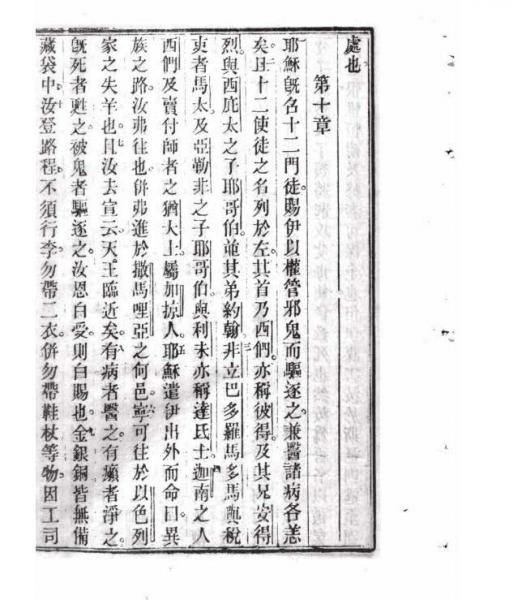 處也
第十章
耶穌旣名十二門徒賜伊以權管邪鬼而驅逐之兼醫諸病各恙
矣且十二使徒之名列於左其首乃西們亦稱彼得及其兄安得
烈與西庇太之子耶哥伯並其弟約翰非立巴多羅馬多馬與稅
吏者馬太及亞勒非之子耶哥伯與利未亦稱達氏士迦南之人
西們及賣付師者之猶大士屬加掠人耶穌遣伊出外而命曰異
族之路汝弗往也併弗進於撒馬哩亞之何邑寧可往於以色列
家之失羊也且汝去宣云天王臨近矣有病者醫之有癩者淨之
旣死者甦之被鬼者驅逐之汝恩白受則白賜也金銀銅皆無備
藏袋中汝登路程不須行李勿帶二衣併勿帶鞋杖等物因工司